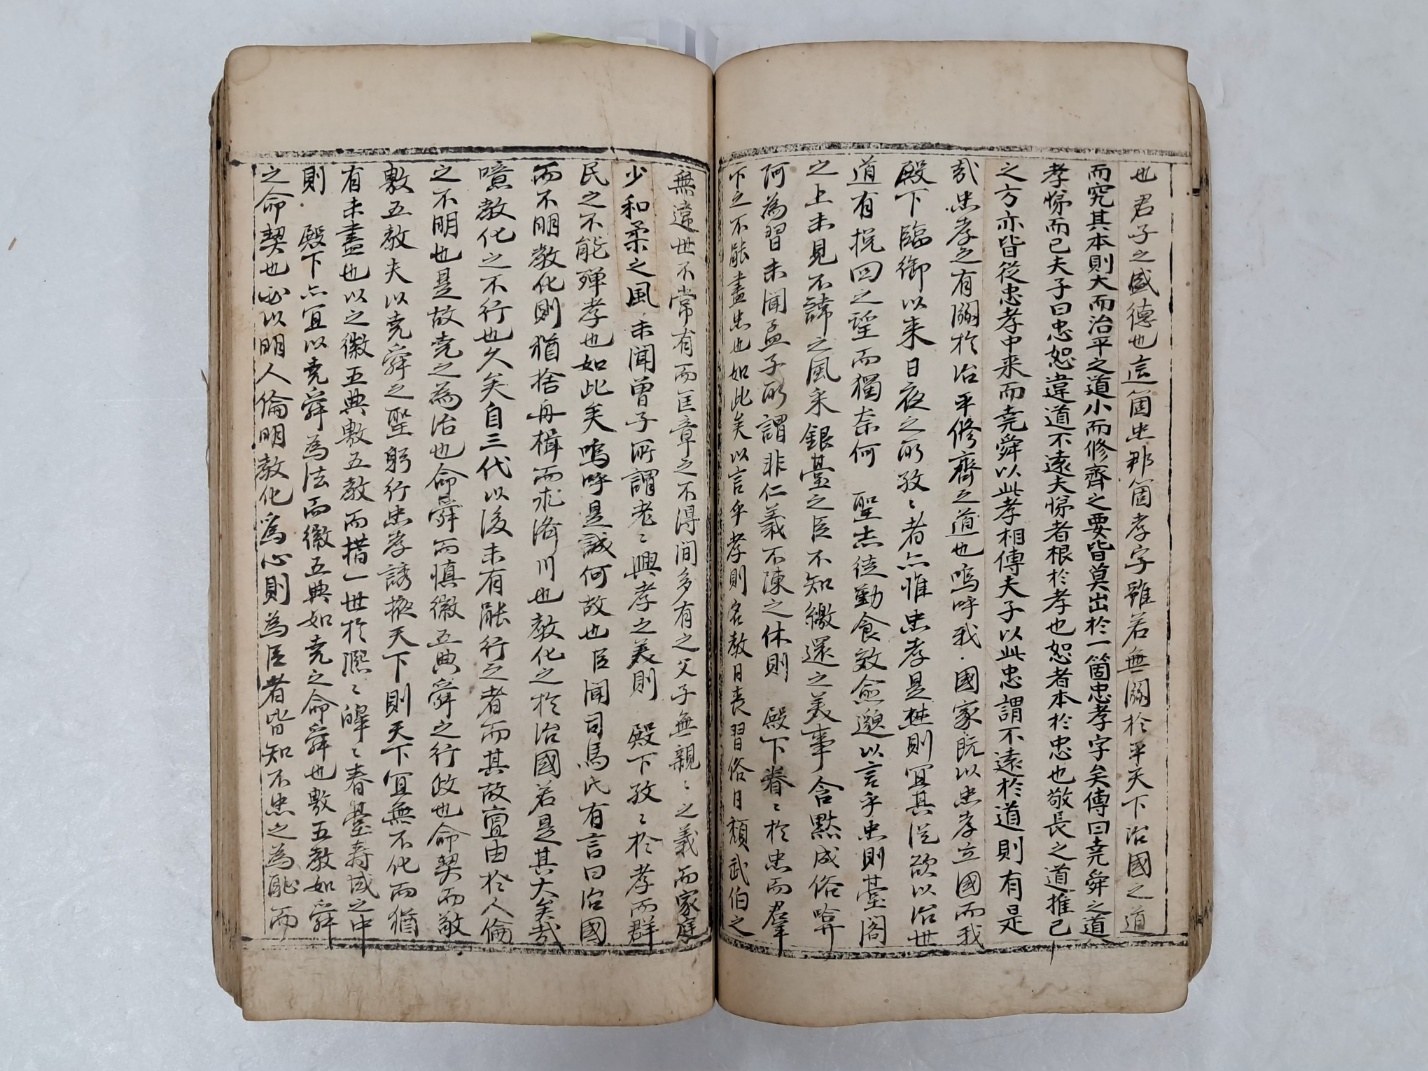 也君子之盛德也這箇忠那箇孝字雖若無關於平天下治國之道
而究其本則大而治平之道小而修齊之要皆莫出於一箇忠孝字矣傳曰堯舜之道
孝悌而已夫子曰忠恕違道不遠夫悌者根於孝也恕者本於忠也敬長之道推己
之方亦皆從忠孝中來而堯舜以此孝相傳夫子以此忠謂不遠於道則有是
哉忠孝之有關於治平修齊之道也嗚呼我國家既以忠孝立國而我
殿下臨御以來日夜之所孜〻者亦惟忠孝是
則宜其從欲以治世
道有挽回之望而獨奈何 聖志徒勤食效愈邈以言乎忠則臺閣
之上未見不諱之風采銀臺之臣不知繳還之美事含默成俗
阿為習未聞孟子所謂非仁義不陳之休則 殿下眷〻於忠而羣
下之不能盡忠也如此矣以言乎孝則名教日喪習俗日頹武伯之
無違世不常有而匡章之不得間多有之父子無親〻之義而家庭
少和柔之風未聞曾子所謂老〻興孝之美則 殿下孜〻於孝而群
民之不能殫孝也如此矣嗚呼是誠何故也臣聞司馬氏有言曰治國
而不明教化則猶捨舟楫而求濟川也教化之於治國若是其大矣哉
噫教化之不行也久矣自三代以後未有能行之者而其故亶由於人倫
之不明也是故堯之為治也命舜而慎徽五典舜之行政也命契而敬
敷五教夫以堯舜之聖躬行忠孝誘掖天下則天下宜無不化而猶
有未盡也以之徽五典敷五教而措一世於熙〻皞〻春臺壽域之中
則 殿下亦宜以堯舜為法而徽五典如堯之命舜也敷五教如舜
之命契也必以明人倫明教化為心則為臣者皆知不忠之為恥而